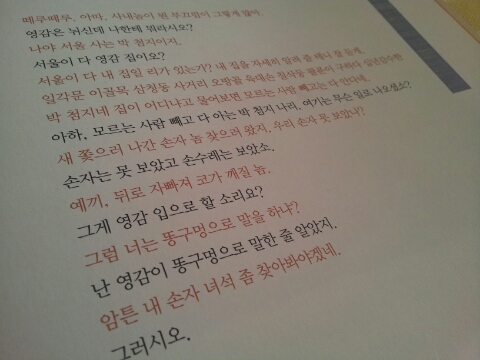 떼루떼루. 아따. 사내놈이 뭔 부끄럼이 그렇게 많아.
영감은 뉘신데 나한테 뭐라시오?
나야 서울 사는 박 첨지이지.
서울이 다 영감 집이오?
서울이 다 내 집일 리가 있는가? 내 집을 자세히 알려 줄 테니 잘 듣게.
일각문 이골목 삼청동 사거리 오방골
박 첨지네 집이 어디냐고 물어보면 모르는 사람 빼고는 다 안다네.
아하, 모르는 사람 빼고 다 아는 박 첨지 나리. 여기는 무슨 일로 나오셨소?
새 쫓으러 나간 손자 놈 찾으러 왔지. 우리 손자 못 보았나?
손자는 못 보았고 손수레는 보았소.
예끼, 뒤로 자빠져 코가 깨질 놈.
그게 영감 입으로 할 소리요?
그럼 너는 똥구멍으로 말을 하냐?
난 영감이 똥구멍으로 말한 줄 알았지.
암튼 내 손자 녀석 좀 찾아봐야겠네.
그러시오.